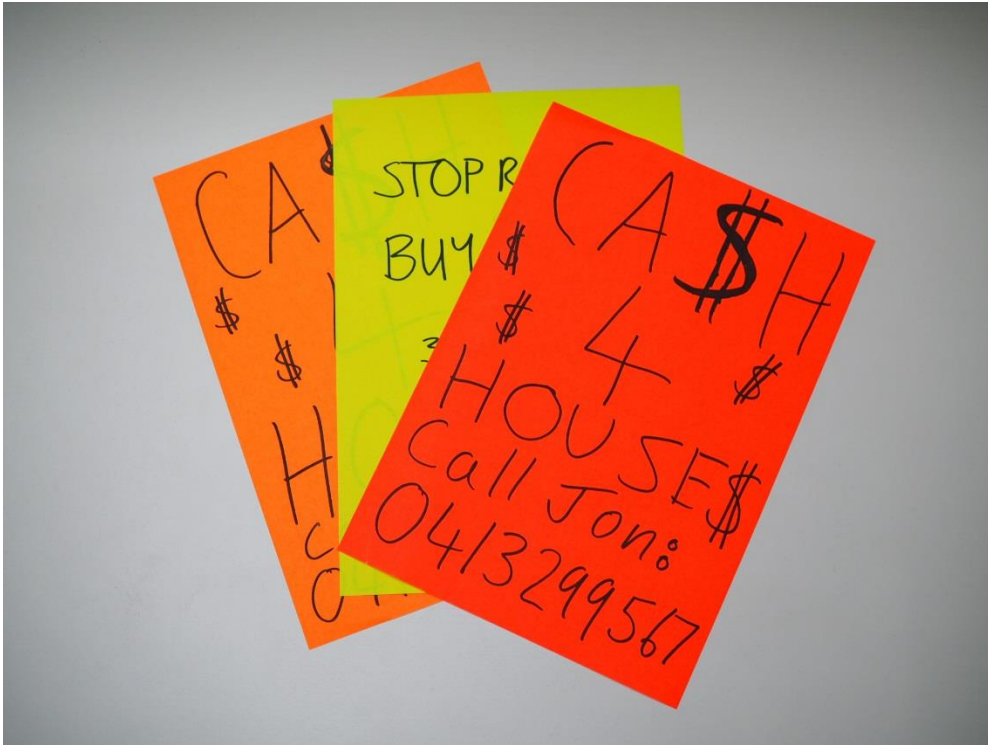 CA
$
$
H
STOP
BUY
CA$H
$
$ 4 $
HOUSE$
Call Jon:
0413299567